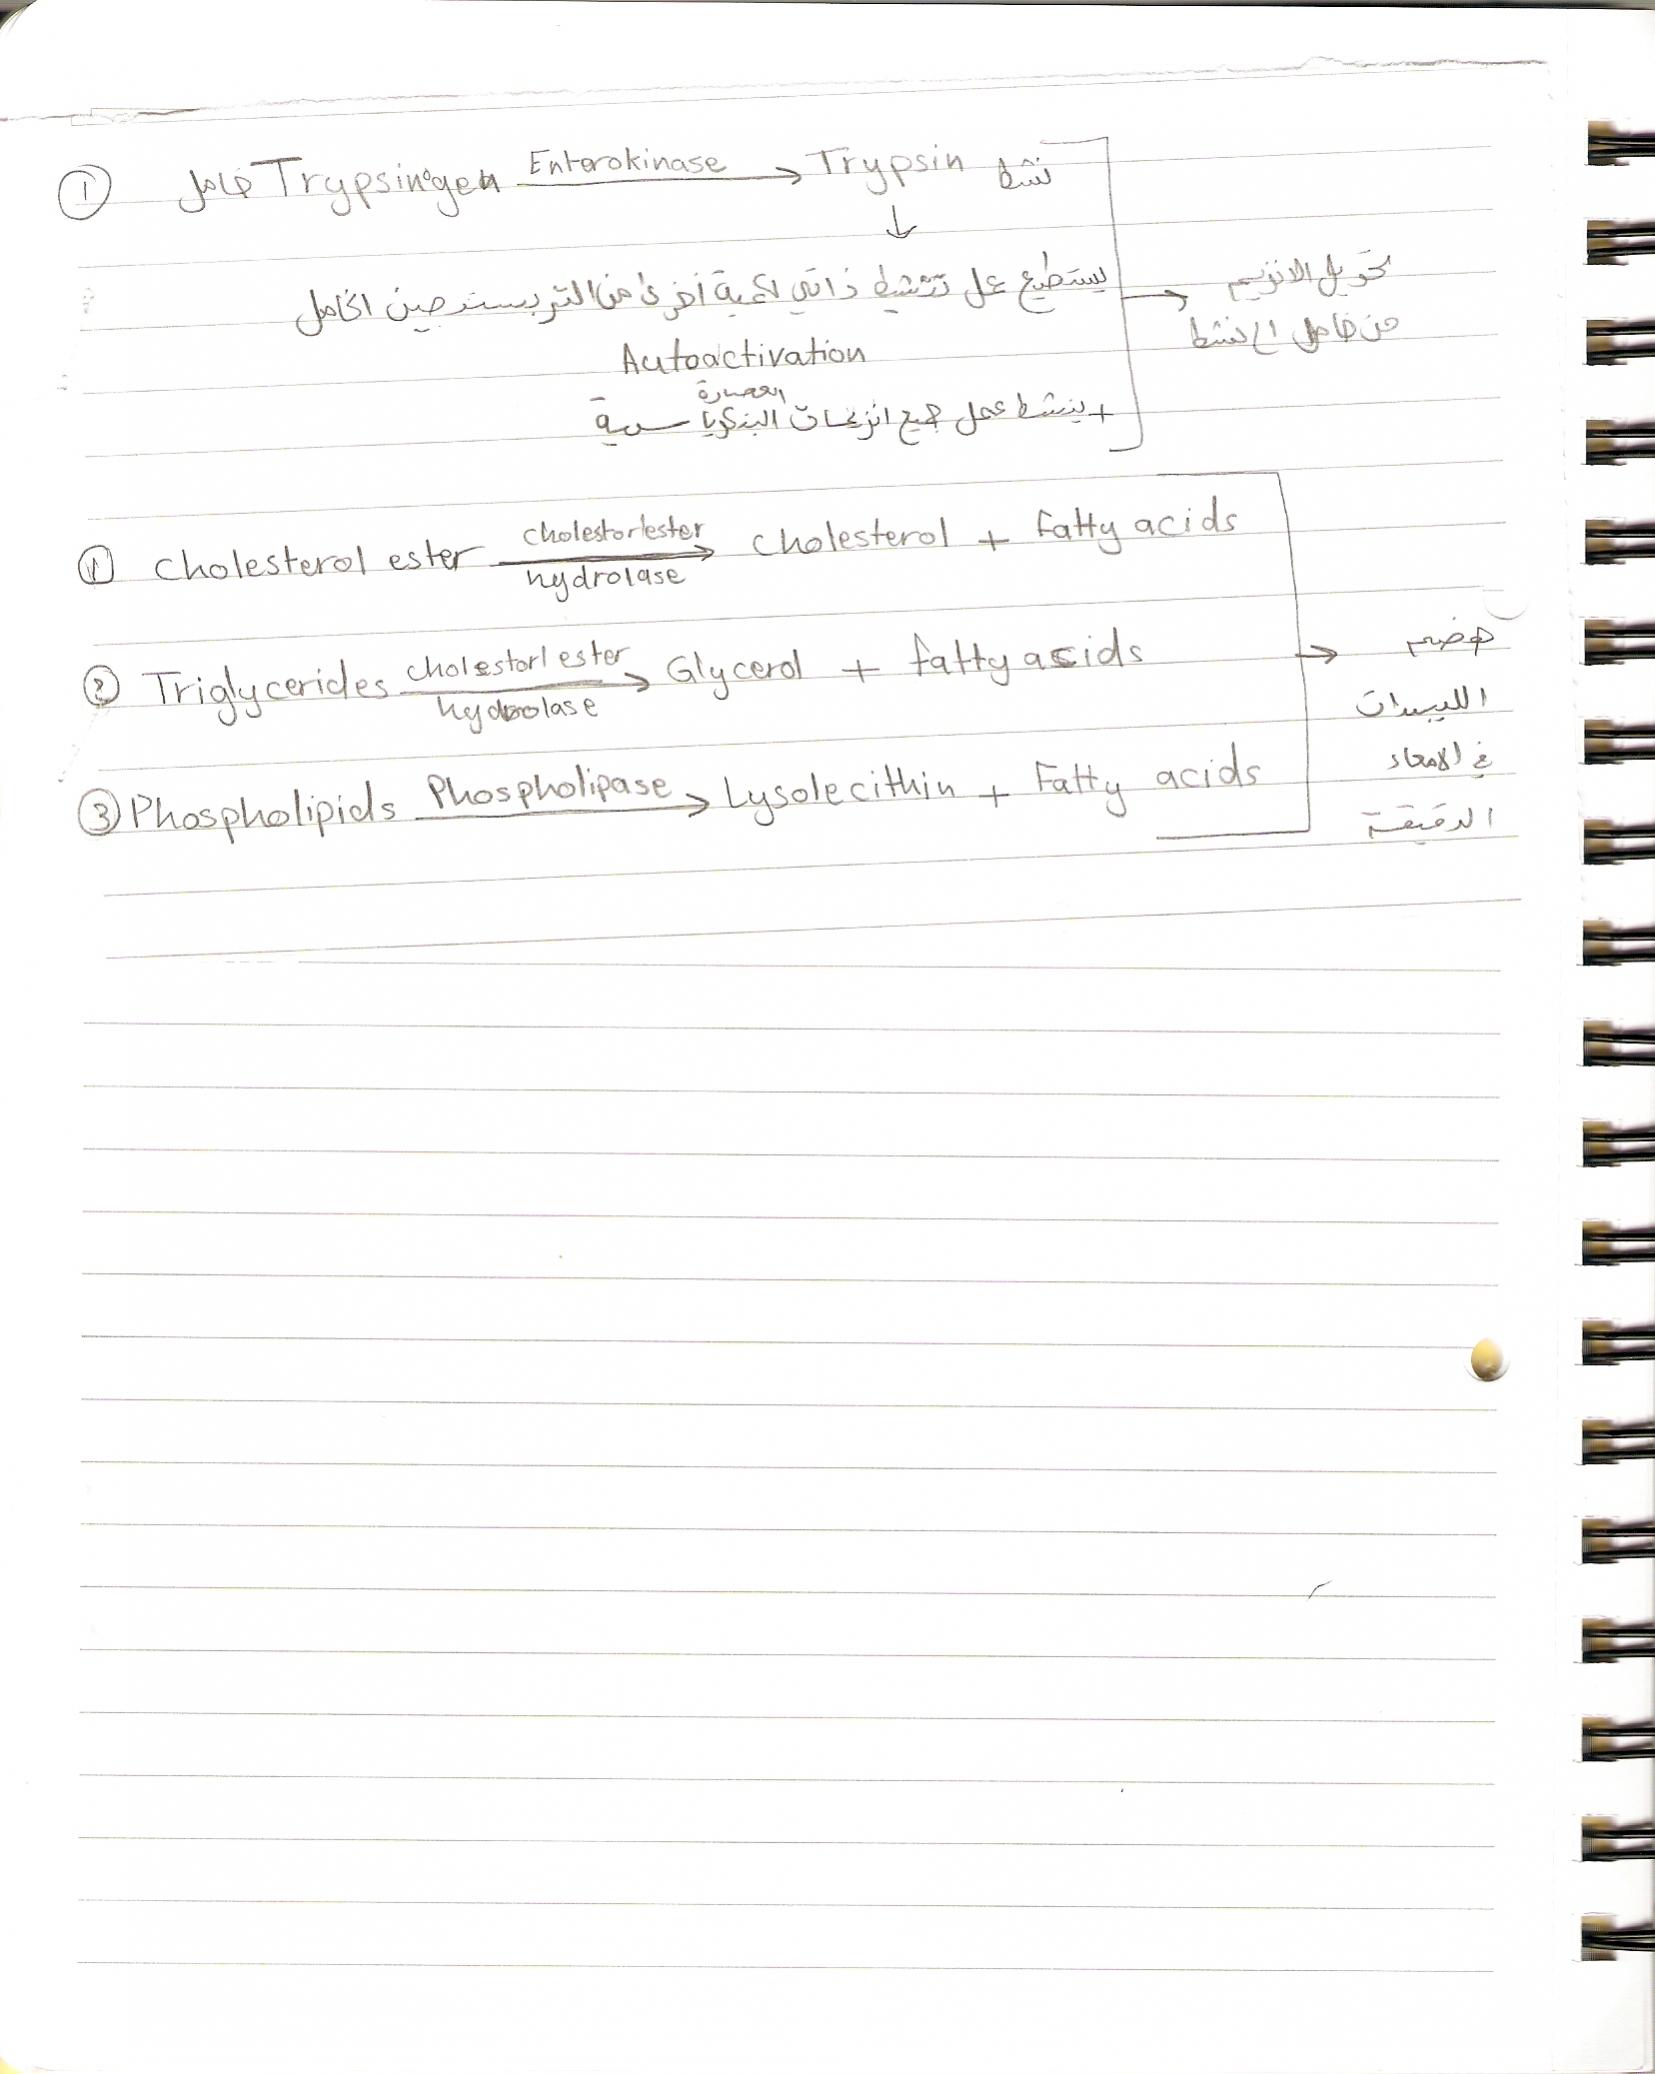 ① خامل Trypsinogen Enterokinase → Trypsin نشط
↓
يستطيع عمل تنشيط ذاتي لكمية أخرى من التربسنوجين الخامل
Autoactivation
العصارة
+ ينشط عمل جميع انزيمات البنكرياسية
→ تحويل الانزيم
من خامل الى نشط
① Cholesterol ester cholestorlester hydrolase → Cholesterol + Fatty acids
② Triglycerides cholestorlester hydrolase → Glycerol + fatty acids
③ Phospholipids Phospholipase → Lysolecithin + Fatty acids
→ هضم
الليبيدات
في الامعاء
الدقيقة